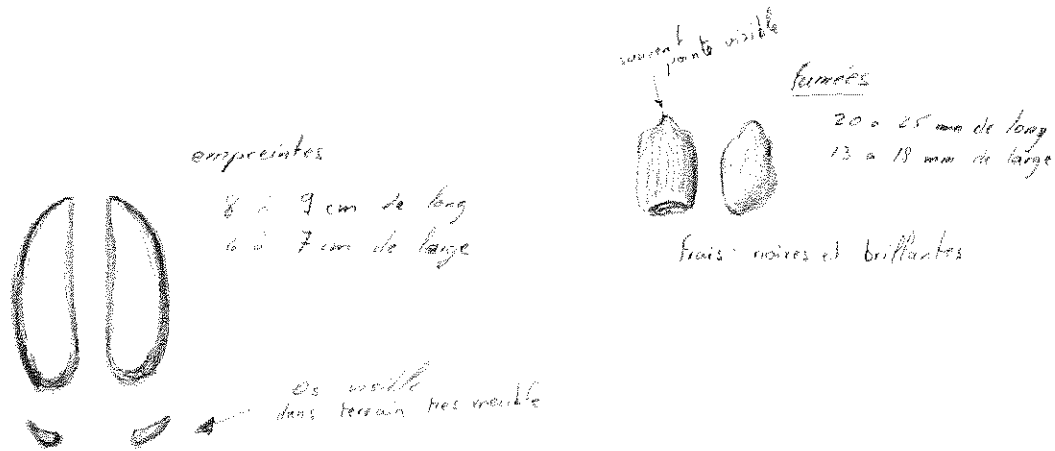 empreintes
8 à 9 cm de long
6 à 7 cm de large
Os visible
dans terrain très meuble
souvent
pointe visible
fumées
20 à 25 mm de long
13 à 18 mm de large
frais : noires et brillantes